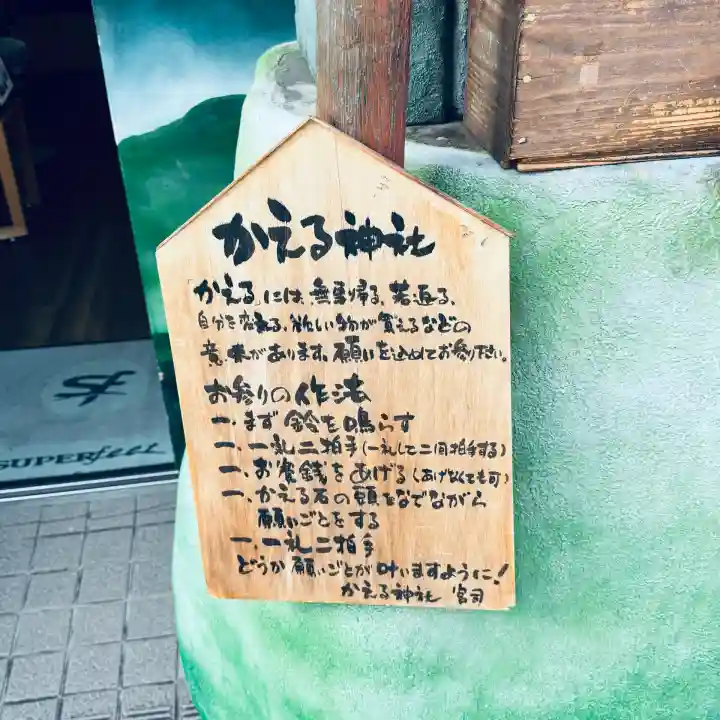 かえる神社
「かえる」には、無事帰る、若返る、
自分を変える、欲しい物が買えるなどの
意味があります。願いを込めてお参り下さい。
お参りの作法
一、まず鈴を鳴らす
一、一礼二拍手(一礼して二回拍手する)
一、お賽銭をあげる(あげなくても可)
一、かえる石の頭をなでながら
願いごとをする
一、一礼二拍手
どうか願いごとが叶いますように!
かえる神社 宮司
SF
SUPERfeet